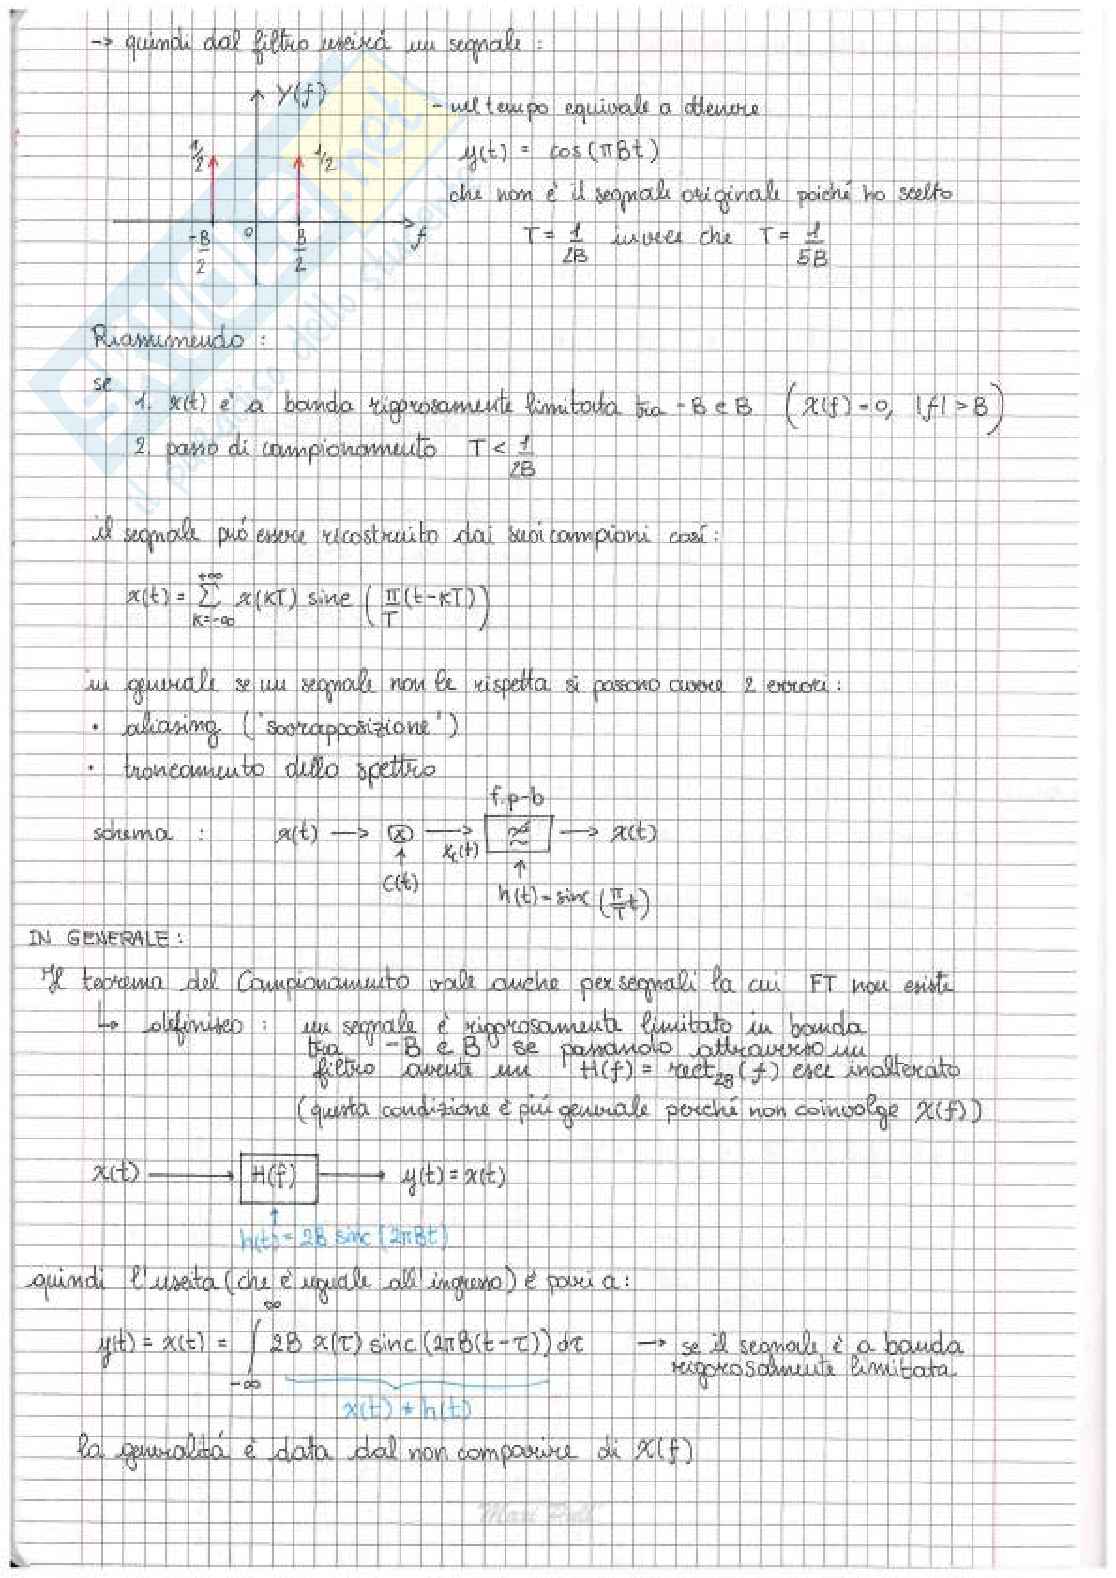 → quindi dal filtro uscirá un segnale :
Y(f)
- nel tempo equivale a ottenere
1/2 1/2
y(t) = cos(πBt)
che non é il segnale originale poiché ho scelto
-B/2 0 B/2 f
T = 1/2B invece che T = 1/5B
Riassumendo :
se
1. x(t) é a banda rigorosamente limitata tra -B e B (X(f)=0, |f|>B)
2. passo di campionamento T < 1/2B
il segnale puó essere ricostruito dai suoi campioni cosí :
x(t) = +∞ Σ K=-∞ x(KT) sinc (π/T (t-KT))
in generale se un segnale non le rispetta si possono avere 2 errori :
• aliasing ("sovrapposizione")
• troncamento dello spettro
f.p-b
schema : x(t) → (x) → → x(t)
xc(t)
c(t)
h(t) = sinc (π/T t)
IN GENERALE :
Il teorema del Campionamento vale anche per segnali la cui FT non esiste
↳ definisco : un segnale é rigorosamente limitato in banda
tra -B e B se passando attraverso un
filtro avente un H(f) = rect2B(f) esce inalterato
(questa condizione é piú generale perché non coinvolge X(f))
x(t) → H(f) → y(t) = x(t)
h(t) = 2B sinc (2πBt)
quindi l'uscita (che é uguale all'ingresso) é pari a :
y(t) = x(t) = ∫ ∞ -∞ 2B x(τ) sinc (2πB(t-τ)) dτ → se il segnale é a banda
rigorosamente limitata
x(t) * h(t)
la generalitá é data dal non comparire di X(f)
"Maxi Pull"
SKUOLA.net
il paradiso dello studente